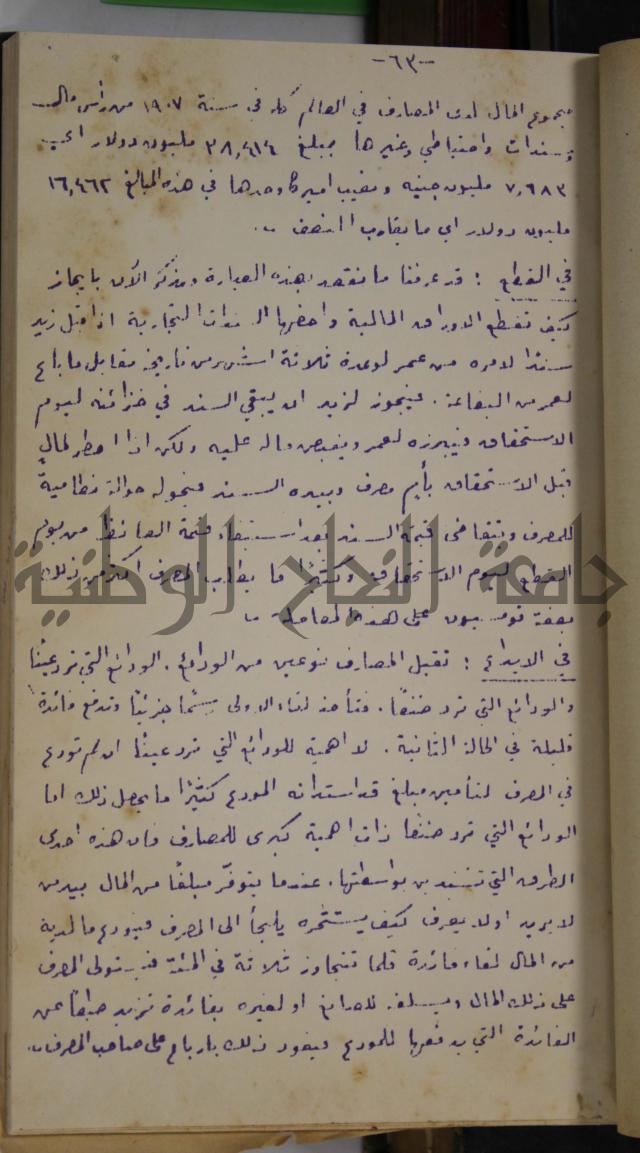 -٦٣-
مجموع المال لدى المصارف في العالم كله في سنة ١٩٠٧ من رأس مال
وسندات واحتياطي وغيرها بمبلغ ٣٨,٤١٤ مليون دولار اي
٧,٦٨٣ مليون جنيه ونصيب اميركا وحدها في هذه المبالغ ١٦,٤٦٢
مليون دولار اي ما يقارب النصف .
في القطع : قد عرفنا ما نقصد بهذه العبارة ونذكر الآن بايجاز
كيف تقطع الاوراق المالية واخصها السندات التجارية اذا قبل زيد
سندًا لامره من عمر لوعدة ثلاثة اشهر من تاريخه مقابل ما باع
لعمر من البضاعة . فيجوز لزيد ان يبقي السند في خزائنه ليوم
الاستحقاق فيبرزه لعمر ويقبض ماله عليه ولكن اذا اضطر لمالٍ
قبل الاستحقاق يأم مصرف وبيده السند فيحوله حوالة نظاميةً
للمصرف ويتقاضى قيمة السند بعد استيفاء قيمة الفائظ من يوم
القطع ليوم الاستحقاق وكثيرًا ما يطلب المصرف اكثر من ذلك
بصفة قومسيون على هذه المعاملة .
في الايداع : تقبل المصارف نوعين من الودائع . الودائع التي ترد عينًا
والودائع التي ترد ضنفًا . فتأخذ لقاء الاولى رسمًا جزئيًا وتدفع فائدة
قليلة في الحالة الثانية . لا اهمية للودائع التي ترد عينًا ان لم تودع
في المصرف لتأمين مبلغ قد استدانه المودع كثيرًا ما يحصل ذلك اما
الودائع التي ترد ضنفًا ذات اهمية كبرى للمصارف فان هذه احدى
الطرق التي تستدين بواسطتها . عندما يتوفّر مبلغًا من المال بيد من
لا يريد او لا يعرف كيف يستثمره يلجأ الى المصرف فيودع ما لديه
من المال لقاء فائدة قلما تتجاوز ثلاثة في المئة فيستولى المصرف
على ذلك المال ويسلفه للصراف او لغيره بفائدة تزيد طبعًا عن
الفائدة التي يدفعها للمودع فيعود ذلك بارباح على صاحب المصرف .
جامعة النجاح الوطنية